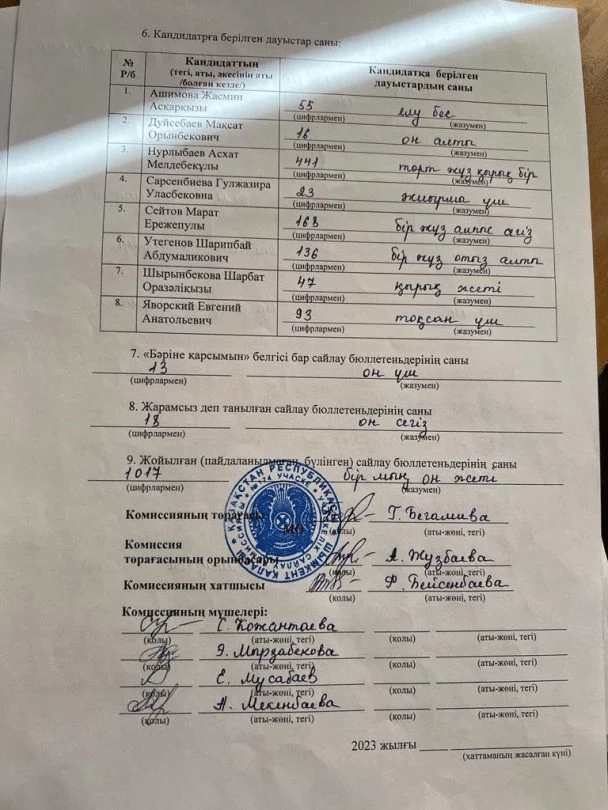 6. Кандидатрға берілген дауыстар саны:
№ Р/б
Кандидаттың
(тегі, аты, әкесінің аты /болған кезде/)
Кандидатқа берілген дауыстардың саны
1. Ашимова Жасмин Асқарқызы
55 елу бес
(цифрлармен) (жазумен)
2. Дуйсебаев Мақсат Орынбекович
16 он алты
(цифрлармен) (жазумен)
3. Нурлыбаев Асхат Мелдебекұлы
441 төрт жүз қырық бір
(цифрлармен) (жазумен)
4. Сарсенбиева Гулжазира Уласбековна
23 жиырма үш
(цифрлармен) (жазумен)
5. Сейтов Марат Ережепулы
168 бір жүз алпыс сегіз
(цифрлармен) (жазумен)
6. Утегенов Шарипбай Абдумаликович
136 бір жүз отыз алты
(цифрлармен) (жазумен)
7. Шырынбекова Шарбат Оразәліқызы
47 қырық жеті
(цифрлармен) (жазумен)
8. Яворский Евгений Анатольевич
93 тоқсан үш
(цифрлармен) (жазумен)
7. «Бәріне қарсымын» белгісі бар сайлау бюллетеньдерінің саны
13 он үш
(цифрлармен) (жазумен)
8. Жарамсыз деп танылған сайлау бюллетеньдерінің саны
18 он сегіз
(цифрлармен) (жазумен)
9. Жойылған (пайдаланылмаған, бүлінген) сайлау бюллетеньдерінің саны
1017 бір мың он жеті
(цифрлармен) (жазумен)
ҚАЗАҚСТАН РЕСПУБЛИКАСЫ
ШЫМКЕНТ ҚАЛАСЫ
Комиссияның төрағасы МО Г. Бегалиева
(қолы) (аты-жөні, тегі)
Комиссия
төрағасының орынбасары А. Жузбаева
(қолы) (аты-жөні, тегі)
Комиссияның хатшысы Ф. Бейсенбаева
(қолы) (аты-жөні, тегі)
Комиссияның мүшелері:
С. Кожантаева
(қолы) (аты-жөні, тегі) (қолы) (аты-жөні, тегі)
Э. Мырзабекова
(қолы) (аты-жөні, тегі) (қолы) (аты-жөні, тегі)
Е. Мусабаев
(қолы) (аты-жөні, тегі) (қолы) (аты-жөні, тегі)
А. Мекенбаева
(қолы) (аты-жөні, тегі) (қолы) (аты-жөні, тегі)
2023 жылғы
(хаттаманың жасалған күні)